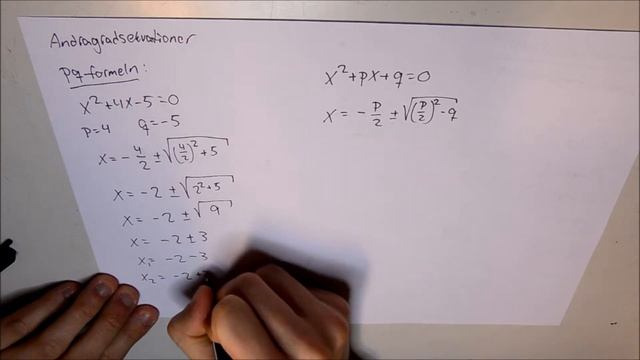 Andragradsekvationer
pq-formeln:
x²+4x-5=0
p=4 q=-5
x=-4/2 ±√((4/2)²+5)
x=-2 ±√(2²+5)
x=-2 ±√9
x=-2±3
x₁=-2-3
x₂=-2+
x²+px+q=0
x=-p/2 ±√((p/2)²-q)